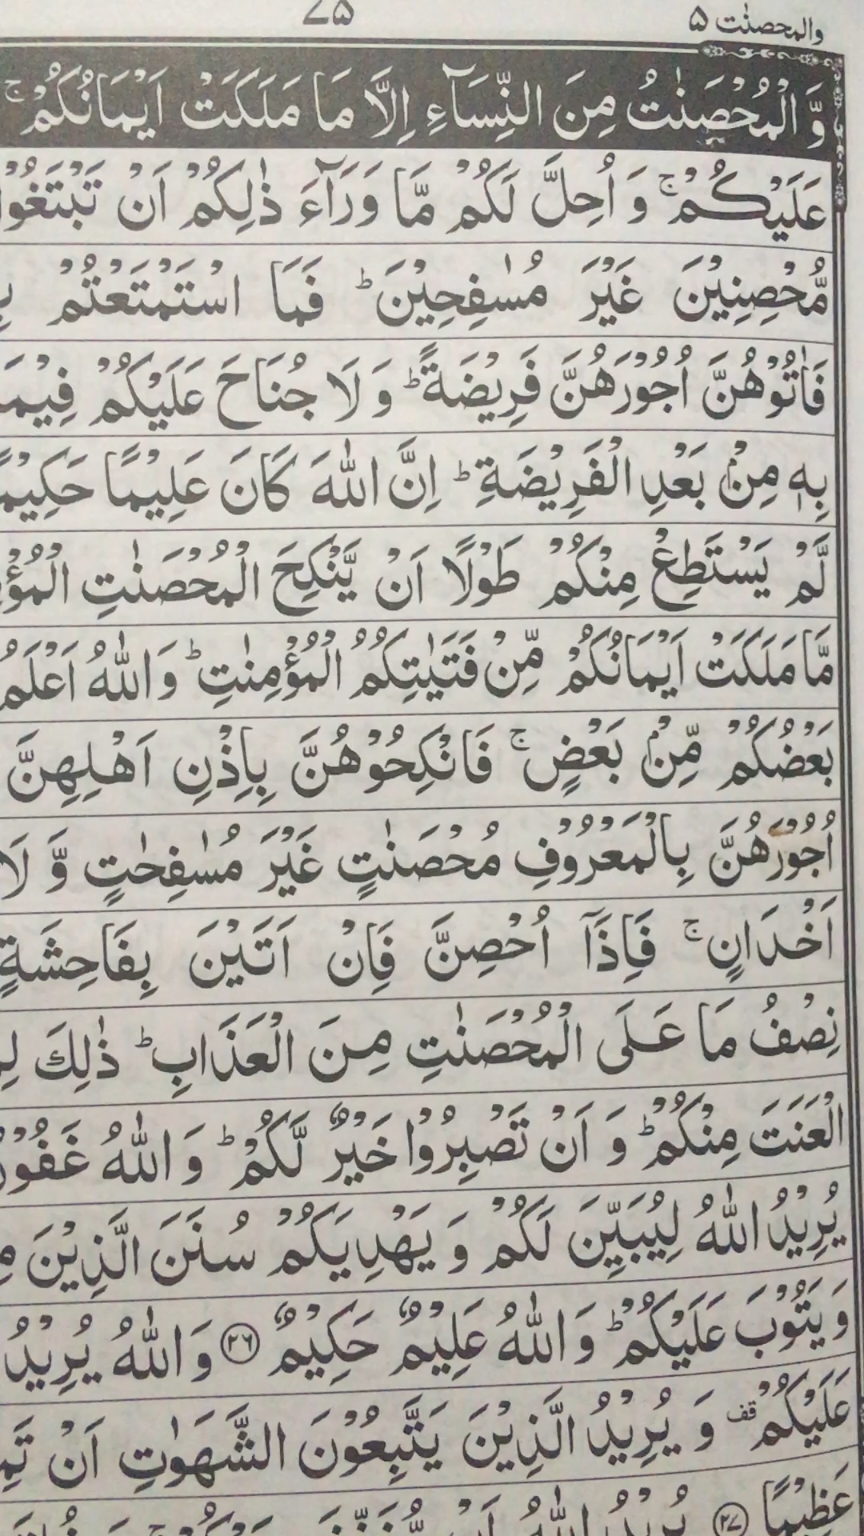 والمحصنت ۵ ۷۵
وَّ الْمُحْصَنٰتُ مِنَ النِّسَآءِ اِلَّا مَا مَلَكَتْ اَيْمَانُكُمْ ۚ
عَلَيْكُمْ ۚ وَ اُحِلَّ لَكُمْ مَّا وَرَآءَ ذٰلِكُمْ اَنْ تَبْتَغُوْا
مُّحْصِنِيْنَ غَيْرَ مُسٰفِحِيْنَ ؕ فَمَا اسْتَمْتَعْتُمْ
فَاٰتُوْهُنَّ اُجُوْرَهُنَّ فَرِيْضَةً ؕ وَ لَا جُنَاحَ عَلَيْكُمْ فِيْمَا
بِهٖ مِنْۢ بَعْدِ الْفَرِيْضَةِ ؕ اِنَّ اللّٰهَ كَانَ عَلِيْمًا حَكِيْمًا
لَّمْ يَسْتَطِعْ مِنْكُمْ طَوْلًا اَنْ يَّنْكِحَ الْمُحْصَنٰتِ
مَّا مَلَكَتْ اَيْمَانُكُمْ مِّنْ فَتَيٰتِكُمُ الْمُؤْمِنٰتِ ؕ وَاللّٰهُ اَعْلَمُ
بَعْضُكُمْ مِّنْۢ بَعْضٍ ۚ فَانْكِحُوْهُنَّ بِاِذْنِ اَهْلِهِنَّ
اُجُوْرَهُنَّ بِالْمَعْرُوْفِ مُحْصَنٰتٍ غَيْرَ مُسٰفِحٰتٍ وَّ لَا
اَخْدَانٍ ۚ فَاِذَآ اُحْصِنَّ فَاِنْ اَتَيْنَ بِفَاحِشَةٍ
نِصْفُ مَا عَلَى الْمُحْصَنٰتِ مِنَ الْعَذَابِ ؕ ذٰلِكَ
الْعَنَتَ مِنْكُمْ ؕ وَ اَنْ تَصْبِرُوْا خَيْرٌ لَّكُمْ ؕ وَ اللّٰهُ غَفُوْرٌ
يُرِيْدُ اللّٰهُ لِيُبَيِّنَ لَكُمْ وَ يَهْدِيَكُمْ سُنَنَ الَّذِيْنَ
وَ يَتُوْبَ عَلَيْكُمْ ؕ وَاللّٰهُ عَلِيْمٌ حَكِيْمٌ ۲۶ وَ اللّٰهُ يُرِيْدُ
عَلَيْكُمْ قف وَ يُرِيْدُ الَّذِيْنَ يَتَّبِعُوْنَ الشَّهَوٰتِ اَنْ
عَظِيْمًا ۲۷ يُرِيْدُ اللّٰهُ اَنْ